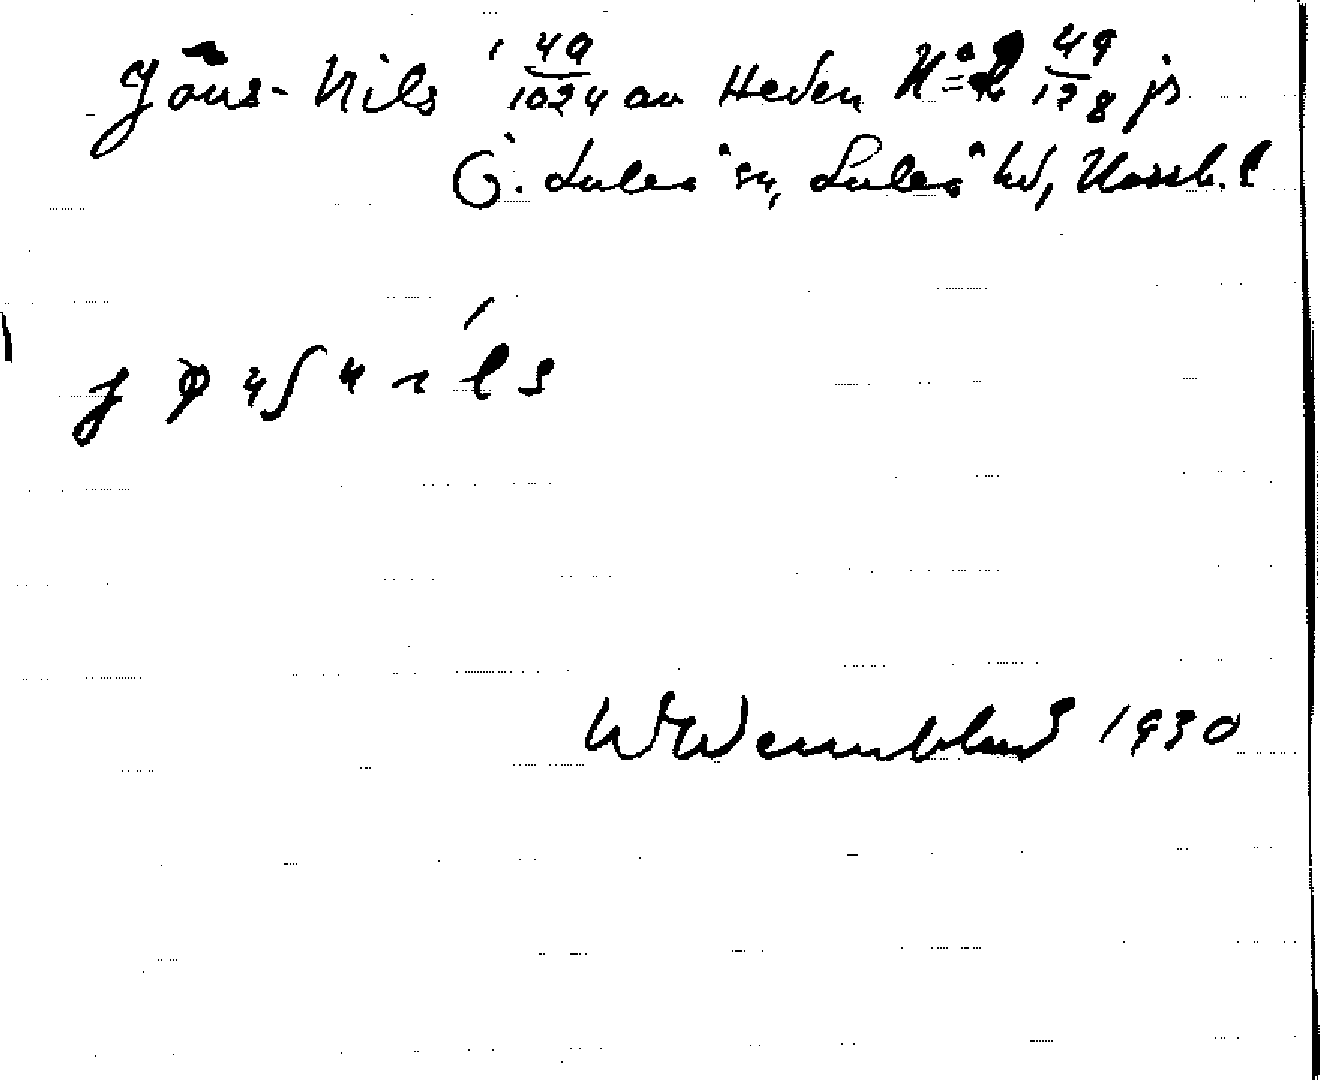 Jöns-Nils 49/1024 av Heden No 2 49/128 i
Ö. Luleå sn, Luleå hd, Norrb. l
W Wennblad 1930